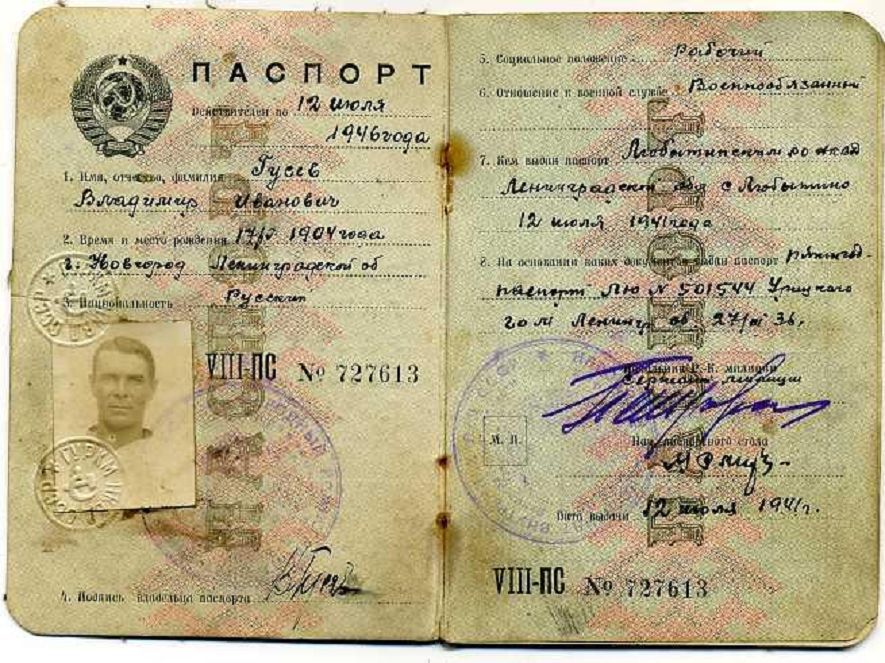 ПАСПОРТ
Действителен по 12 июля
1946 года
1. Имя, отчество, фамилия Гусев
Владимир Иванович
2. Время и место рождения 1904 года
г. Новгород Ленинградской об
3. Национальность Русский
VIII-ПС № 727613
4. Подпись владельца паспорта
5. Социальное положение Рабочий
6. Отношение к военной службе Военнообязанный
7. Кем выдан паспорт Любытинским
Ленинградской обл с Любытино
12 июля 1941 года
8. На основании каких документов выдан паспорт
паспорт № 501544 Урицкого
Ленингр об 36.
Начальник Р.-К. милиции
Сержант милиции
М. П.
Нач. паспортного стола
Дата выдачи 12 июля 1941 г.
VIII-ПС № 727613